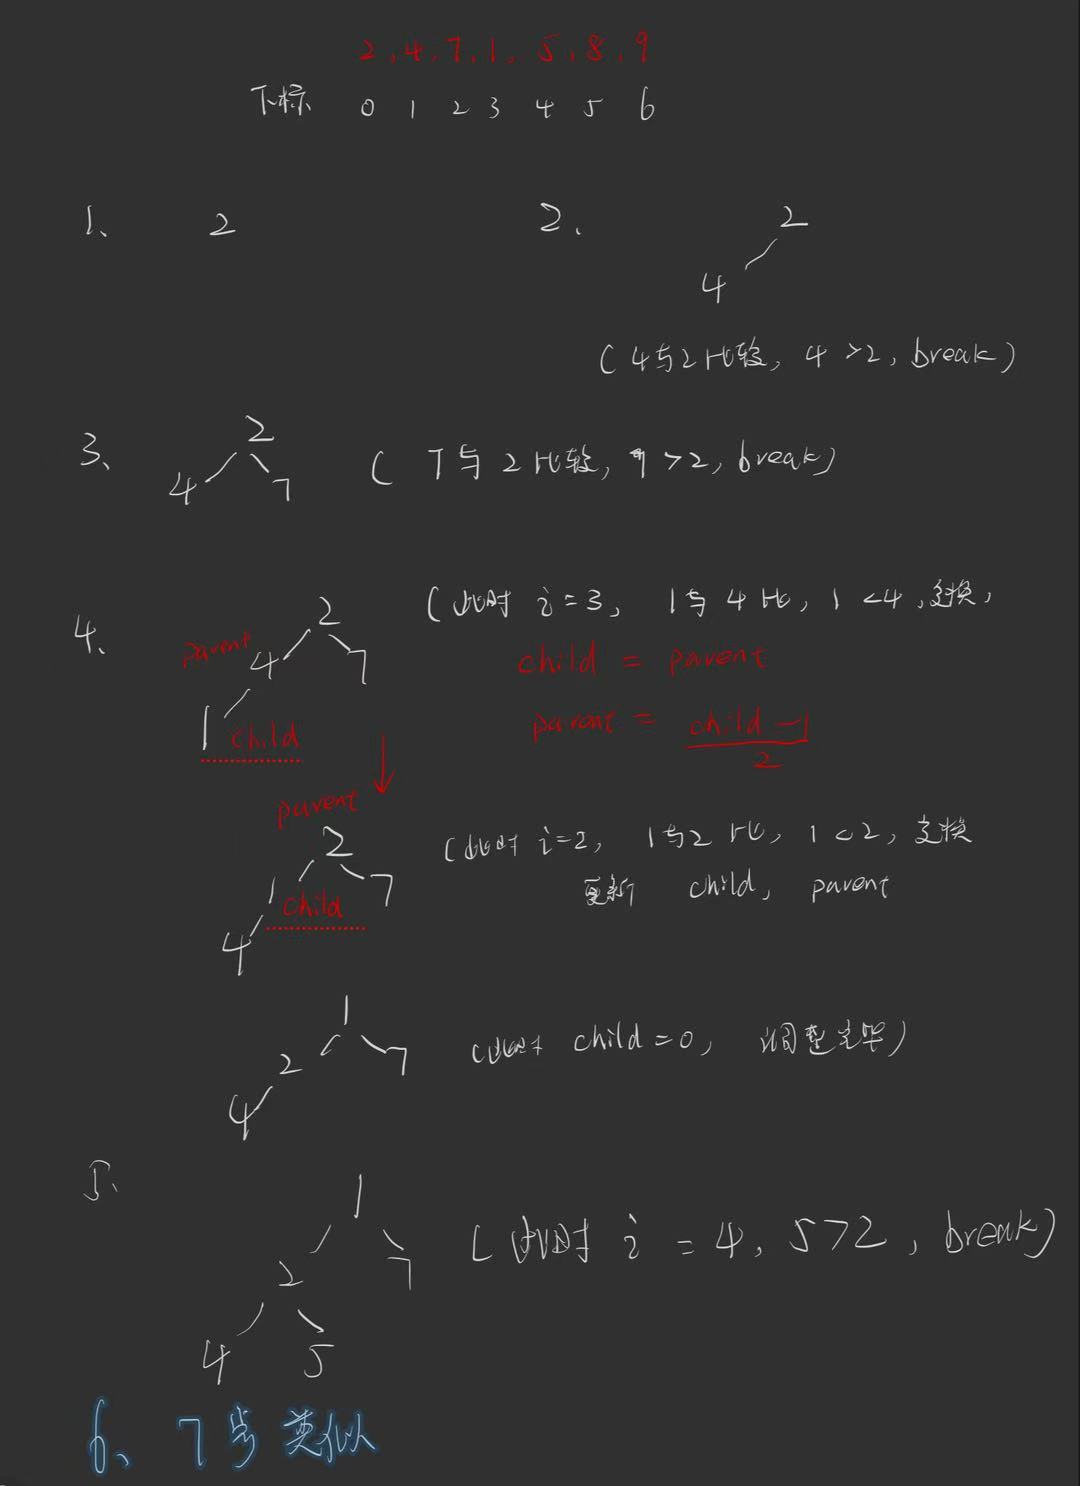 2,4,7,1,5,8,9
下标 0 1 2 3 4 5 6
1、 2
2.
2
4
(4与2比较, 4>2, break)
3、
2
4 7
(7与2比较, 7>2, break)
4、
(此时 i=3, 1与4比, 1<4,交换,
2
parent 4 7
1 child
child = parent
parent = child-1
2
parent
2
1 7
child
4
(此时 i=2, 1与2比, 1<2, 交换
更新 child, parent
1
2 7
4
(此时 child=0, 调整完毕)
5、
1
2 7
4 5
(此时 i=4, 5>2, break)
6、7步类似